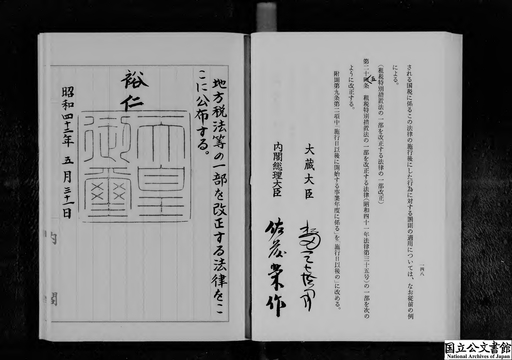 一四八
される国税に係るこの法律の施行後にした行為に対する罰則の適用については、なお従前の例
による。
(租税特別措置法の一部を改正する法律の一部改正)
租税特別措置法の一部を改正する法律(昭和四十一年法律第三十五号)の一部を次の
ように改正する。
附則第九条第二項中「施行日以後に開始する事業年度に係る」を「施行日以後の」に改める。
大蔵大臣
内閣総理大臣 佐藤榮作
地方税法等の一部を改正する法律をこ
こに公布する。
裕仁
天皇御璽
昭和四十三年五月三十一日
国立公文書館
National Archives of Japan